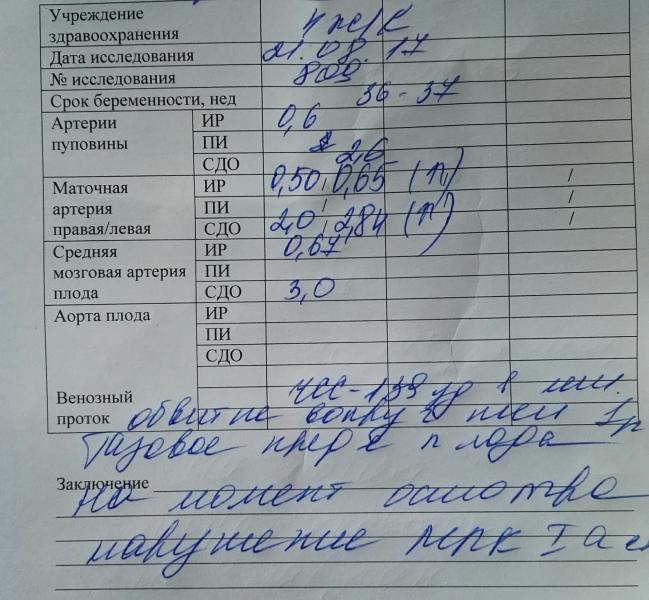 Учреждение
здравоохранения 4 жрк
Дата исследования 21.08.17
№ исследования 809
Срок беременности, нед 36-37
Артерии ИР 0,6
пуповины ПИ
СДО 2,6
Маточная ИР 0,50 / 0,65 (п) /
артерия ПИ / /
правая/левая СДО 2,0 / 2,84 (п) /
Средняя ИР 0,67
мозговая артерия ПИ
плода СДО 3,0
Аорта плода ИР
ПИ
СДО
Венозный ЧСС-139 уд в мин.
проток обвитие вокруг шеи 1р
Тазовое предл плода
Заключение
На момент осмотра
нарушение МПК I а ст